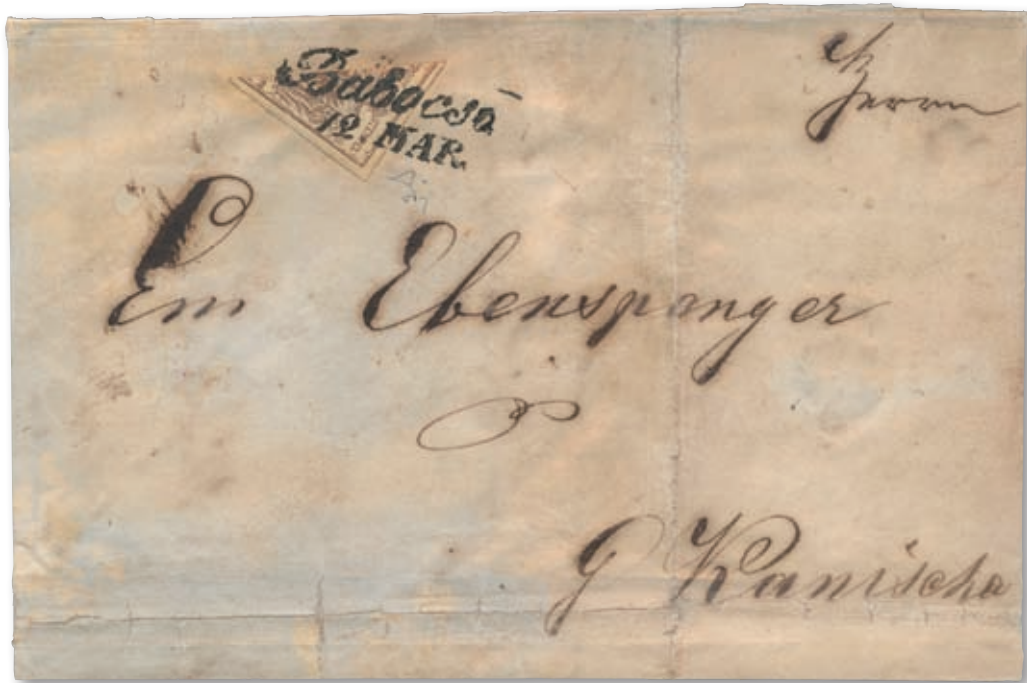 Babocsa
12. MAR.
Herrn
Em Ebenspanger
G Kanischa